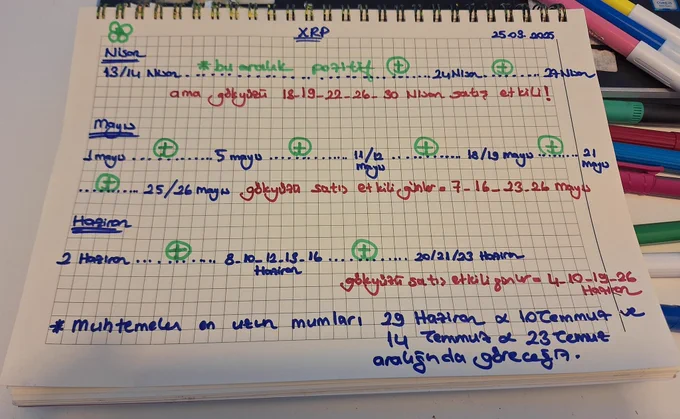 XRP
25.03.2025
Nisan
13/14 Nisan ........ * bu aralık pozitif (+) ........ 24 Nisan ..... (+) ..... 27 Nisan
ama gökyüzü 18-19-22-26-30 Nisan satış etkili!
Mayıs
1 mayıs ..... (+) ..... 5 mayıs ..... (+) ..... 11/12 mayıs ..... (+) ..... 18/19 mayıs ..... (+) ..... 21 mayıs
..... (+) ..... 25/26 mayıs gökyüzü satış etkili günler = 7-16-23-26 mayıs
Haziran
2 Haziran ..... (+) ..... 8-10-12-13-16 Haziran ..... (+) ..... 20/21/23 Haziran
gökyüzü satış etkili günler = 4-10-19-26 Haziran
* Muhtemelen en uzun mumları 29 Haziran ∝ 10 Temmuz ve
14 Temmuz ∝ 23 Temuz
aralığında göreceğiz.